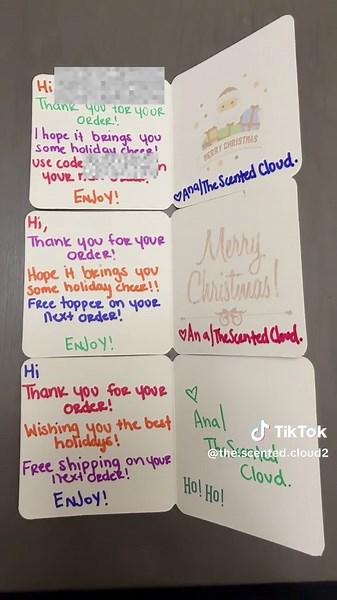 Hi
Thank you for your
order!
I hope it brings you
some holiday cheer!
use code
your
ENJOY!
MERRY CHRISTMAS
♡Ana/The Scented Cloud.
Hi,
Thank you for your
order!
Hope it brings you
some holiday cheer!!
Free topper on your
next order!
ENJOY!
Merry
Christmas!
♡Ana/The Scented Cloud.
Hi
Thank you for your
order!
Wishing you the best
holidays!
Free shipping on your
next order!
ENJOY!
♡
Ana/
The Scented
Cloud.
Ho! Ho!
TikTok
@the.scented.cloud2